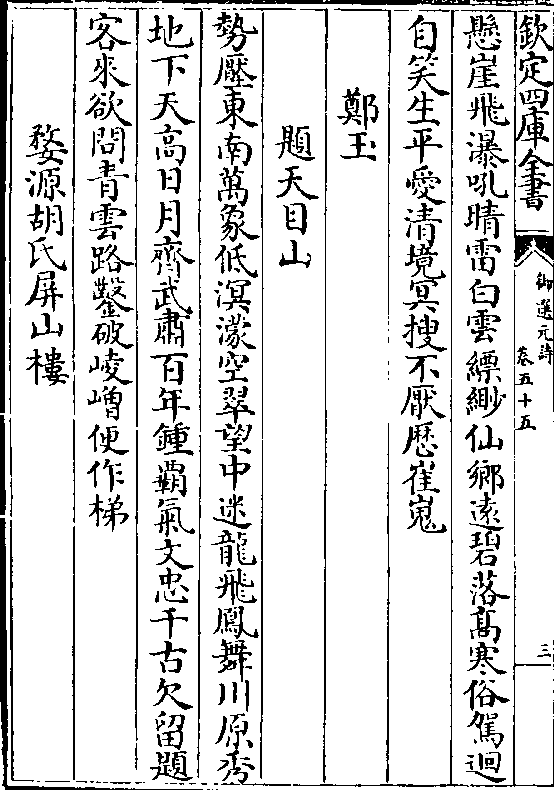 欽定四庫全書
御選元詩
卷五十五
三
懸崖飛瀑吼晴雷白雲縹緲仙鄉遠碧落髙寒俗駕迴
自笑生平愛清境冥搜不厭歴崔嵬
鄭玉
題天目山
勢壓東南萬象低溟濛空翠望中迷龍飛鳳舞川原秀
地下天高日月齊武肅百年鍾覇氣文忠千古欠留題
客來欲問青雲路鑿破崚嶒便作梯
婺源胡氏屏山樓